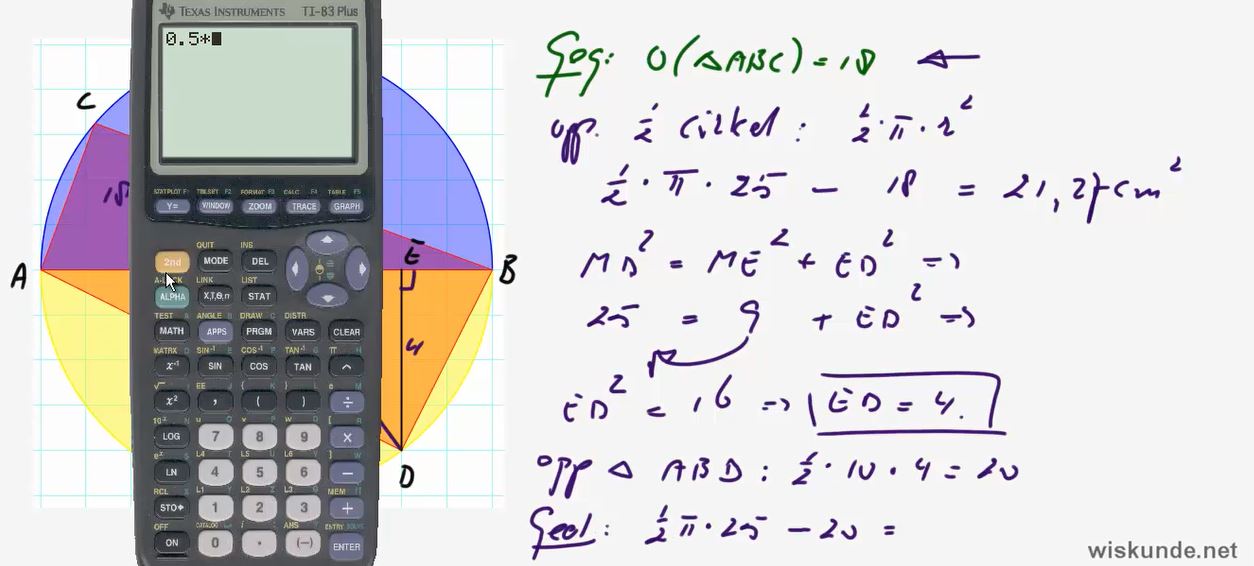 TEXAS INSTRUMENTS TI-83 Plus
0.5*
C
18
A
E
B
4
D
STATPLOT F1 TBLSET F2 FORMAT F3 CALC F4 TABLE F5
Y= WINDOW ZOOM TRACE GRAPH
QUIT INS
2nd MODE DEL
A-LOCK LINK LIST
ALPHA X,T,θ,n STAT
TEST A ANGLE B DRAW C DISTR
MATH APPS PRGM VARS CLEAR
MATRX D SIN⁻¹ E COS⁻¹ F TAN⁻¹ G π H
x⁻¹ SIN COS TAN ^
√ I EE J { K } L e M
x² , ( ) ÷
10ˣ N u O v P w Q [ R
LOG 7 8 9 ×
eˣ S L4 T L5 U L6 V ] W
LN 4 5 6 −
RCL X L1 Y L2 Z L3 θ MEM "
STO▸ 1 2 3 +
OFF CATALOG i ANS ? ENTRY SOLVE
ON 0 . (−) ENTER
Geg: O(△ABC) = 18 ←
opp. ½ cirkel: ½ · π · r²
½ · π · 25 − 18 = 21,27 cm²
MD² = ME² + ED² ⇒
25 = 9 + ED² ⇒
ED² = 16 ⇒ ED = 4.
opp △ ABD: ½ · 10 · 4 = 20
Geel: ½ π · 25 − 20 =
wiskunde.net